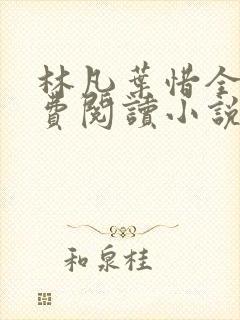 林凡葉惜全
費閱讀小說
和泉桂